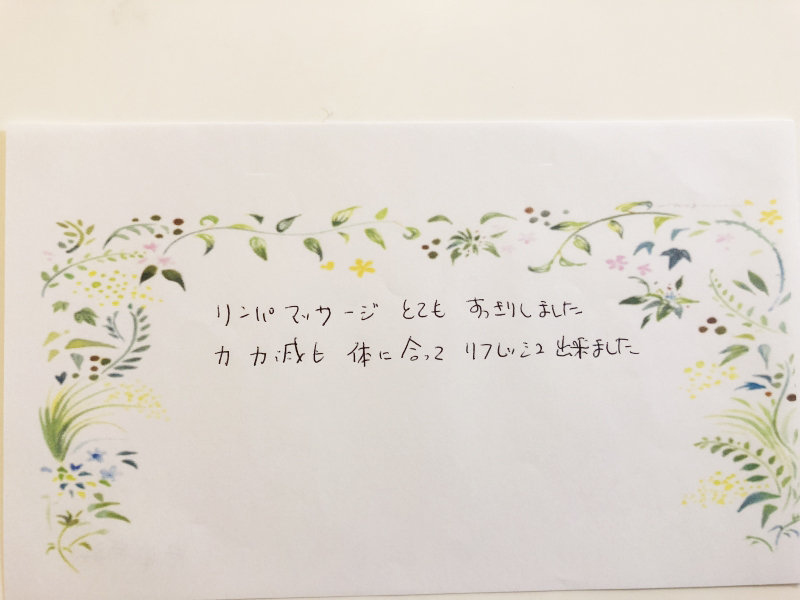 リンパマッサージ とても すっきりしました
力加減も 体に合って リフレッシュ出来ました